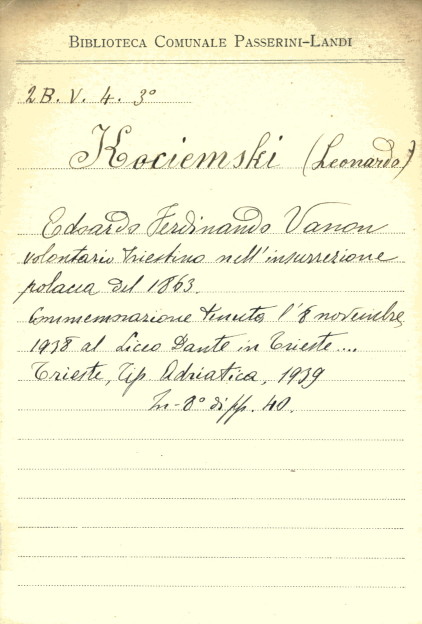 BIBLIOTECA COMUNALE PASSERINI-LANDI
2B. V. 4. 3°
Kociemski (Leonardo)
Edoardo Ferdinando Vanon
volontario triestino nell'insurrezione
polacca del 1863.
Commemorazione tenuta l'8 novembre
1938 al Liceo Dante in Trieste....
Trieste, Tip. Adriatica, 1939
In-8° di pp. 40.